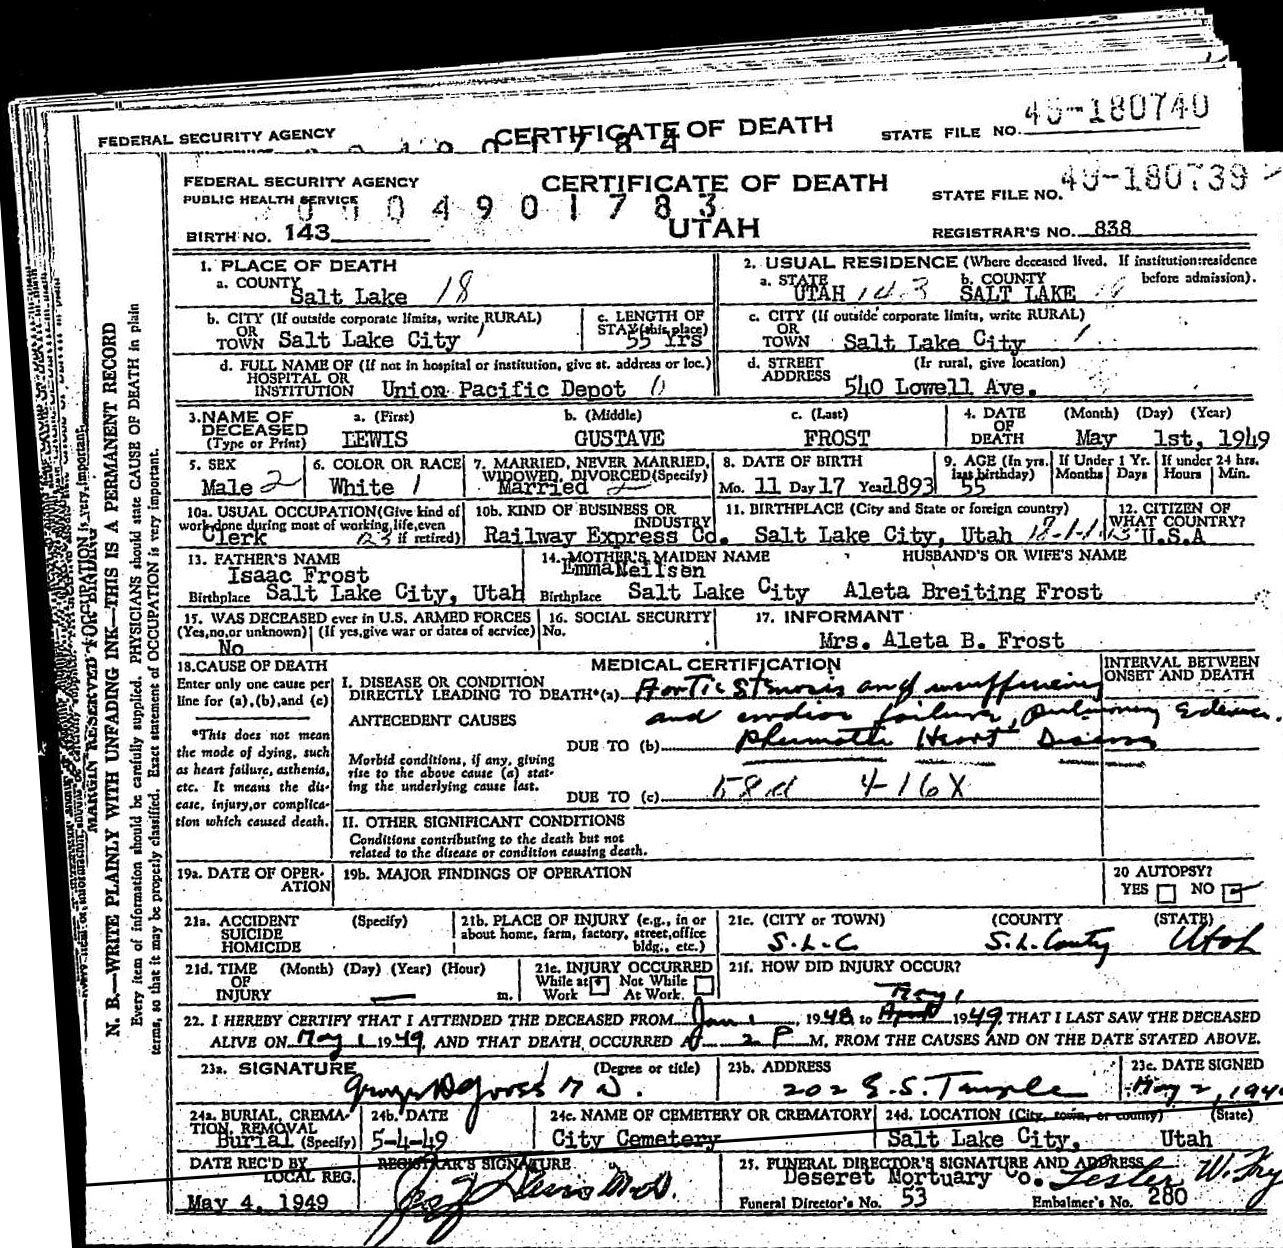 FEDERAL SECURITY AGENCY CERTIFICATE OF DEATH STATE FILE NO. 49-180740
FEDERAL SECURITY AGENCY CERTIFICATE OF DEATH STATE FILE NO. 49-180739
PUBLIC HEALTH SERVICE 04901783
BIRTH NO. 143 UTAH REGISTRAR'S NO. 838
1. PLACE OF DEATH
a. COUNTY
Salt Lake 18
2. USUAL RESIDENCE (Where deceased lived. If institution:residence
before admission).
a. STATE b. COUNTY
UTAH 143 SALT LAKE
b. CITY (If outside corporate limits, write RURAL)
OR
TOWN Salt Lake City
c. LENGTH OF
STAY (this place)
55 Yrs
c. CITY (If outside corporate limits, write RURAL)
OR
TOWN Salt Lake City
d. FULL NAME OF (If not in hospital or institution, give st. address or loc.)
HOSPITAL OR
INSTITUTION Union Pacific Depot 0
d. STREET (If rural, give location)
ADDRESS 540 Lowell Ave.
3. NAME OF
DECEASED
(Type or Print)
a. (First) b. (Middle) c. (Last)
LEWIS GUSTAVE FROST
4. DATE (Month) (Day) (Year)
OF
DEATH May 1st, 1949
5. SEX
Male 2
6. COLOR OR RACE
White 1
7. MARRIED, NEVER MARRIED,
WIDOWED, DIVORCED (Specify)
Married 2
8. DATE OF BIRTH
Mo. 11 Day 17 Year 1893
9. AGE (In yrs.
last birthday)
55
If Under 1 Yr.
Months Days
If under 24 hrs.
Hours Min.
10a. USUAL OCCUPATION (Give kind of
work done during most of working life, even
if retired)
Clerk 123
10b. KIND OF BUSINESS OR
INDUSTRY
Railway Express Co.
11. BIRTHPLACE (City and State or foreign country)
Salt Lake City, Utah
12. CITIZEN OF
WHAT COUNTRY?
U.S.A
13. FATHER'S NAME
Isaac Frost
Birthplace Salt Lake City, Utah
14. MOTHER'S MAIDEN NAME
Emma Neilsen
Birthplace Salt Lake City
HUSBAND'S OR WIFE'S NAME
Aleta Breiting Frost
15. WAS DECEASED ever in U.S. ARMED FORCES
(Yes, no, or unknown) (If yes, give war or dates of service)
No
16. SOCIAL SECURITY
No.
17. INFORMANT
Mrs. Aleta B. Frost
18. CAUSE OF DEATH
Enter only one cause per
line for (a), (b), and (c)
*This does not mean
the mode of dying, such
as heart failure, asthenia,
etc. It means the dis-
ease, injury, or complica-
tion which caused death.
MEDICAL CERTIFICATION
INTERVAL BETWEEN
ONSET AND DEATH
I. DISEASE OR CONDITION
DIRECTLY LEADING TO DEATH*(a) Aortic Stenosis and insufficiency
and cardiac failure, Pulmonary Edema.
ANTECEDENT CAUSES
DUE TO (b) Rheumatic Heart Disease
Morbid conditions, if any, giving
rise to the above cause (a) stat-
ing the underlying cause last.
DUE TO (c) 416X
II. OTHER SIGNIFICANT CONDITIONS
Conditions contributing to the death but not
related to the disease or condition causing death.
19a. DATE OF OPER-
ATION
19b. MAJOR FINDINGS OF OPERATION
20 AUTOPSY?
YES NO
21a. ACCIDENT (Specify)
SUICIDE
HOMICIDE
21b. PLACE OF INJURY (e.g., in or
about home, farm, factory, street, office
bldg., etc.)
21c. (CITY or TOWN) (COUNTY (STATE)
S.L.C S.L. County Utah
21d. TIME (Month) (Day) (Year) (Hour)
OF
INJURY m.
21e. INJURY OCCURRED
While at Not While
Work At Work
21f. HOW DID INJURY OCCUR?
May 1
22. I HEREBY CERTIFY THAT I ATTENDED THE DECEASED FROM Jan 1, 1948 to April 1949, THAT I LAST SAW THE DECEASED
ALIVE ON May 1 1949, AND THAT DEATH OCCURRED AT 2 P M, FROM THE CAUSES AND ON THE DATE STATED ABOVE.
23a. SIGNATURE (Degree or title)
M D.
23b. ADDRESS
202 E. S. Temple
23c. DATE SIGNED
May 2, 194
24a. BURIAL, CREMA-
TION, REMOVAL
Burial (Specify)
24b. DATE
5-4-49
24c. NAME OF CEMETERY OR CREMATORY
City Cemetery
24d. LOCATION (City, town, or county) (State)
Salt Lake City, Utah
DATE REC'D BY
LOCAL REG.
May 4, 1949
REGISTRAR'S SIGNATURE
M.D.
25. FUNERAL DIRECTOR'S SIGNATURE AND ADDRESS
Deseret Mortuary Co. Lester W. Fry
Funeral Director's No. 53 Embalmer's No. 280
MARGIN RESERVED FOR BINDING
N. B.—WRITE PLAINLY WITH UNFADING INK—THIS IS A PERMANENT RECORD
Every item of information should be carefully supplied. PHYSICIANS should state CAUSE OF DEATH in plain
terms, so that it may be properly classified. Exact statement of OCCUPATION is very important.